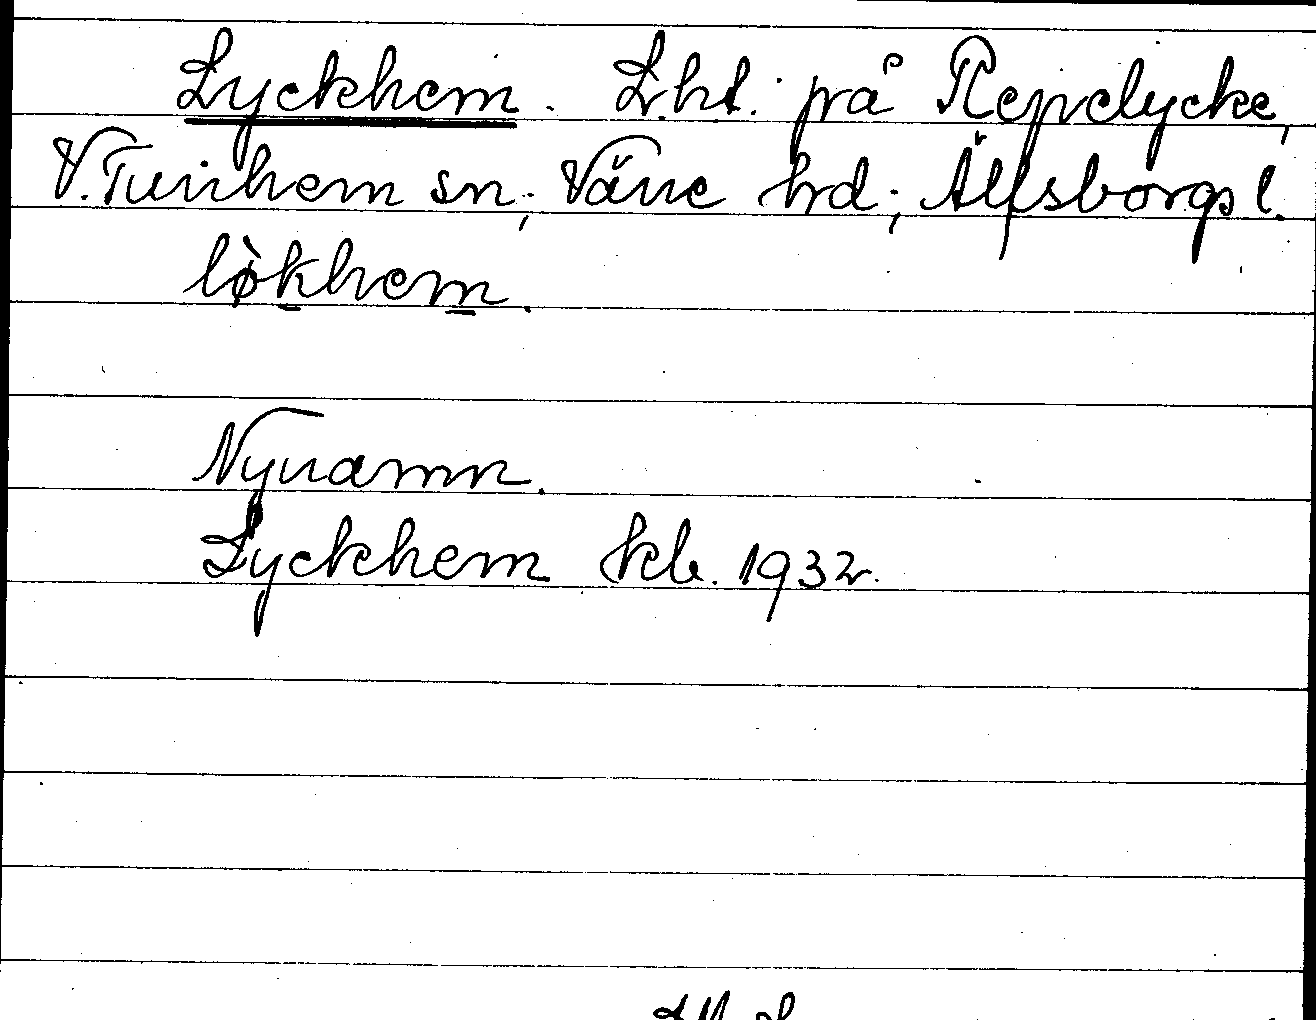 Lyckhem. Lht. på Repelycke,
V. Tunhem sn; Väne hd; Älfsborgs l.
lø̀khem.
Nynamn.
Lyckhem kb. 1932.